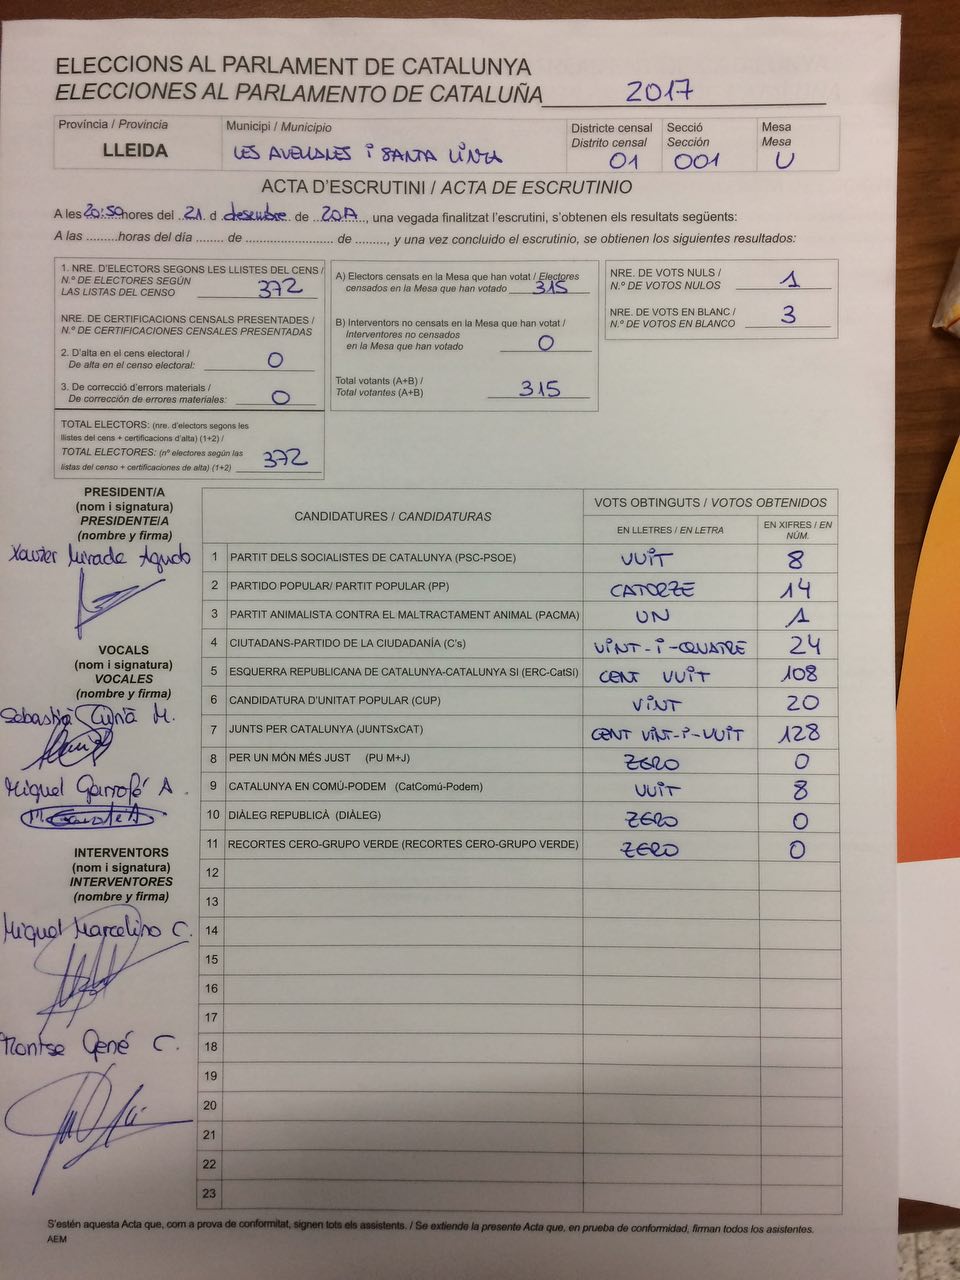 ELECCIONS AL PARLAMENT DE CATALUNYA
ELECCIONES AL PARLAMENTO DE CATALUÑA 2017
Província / Provincia
LLEIDA
Municipi / Municipio
LES AVELLANES i SANTA LINYA
Districte censal
Distrito censal
01
Secció
Sección
001
Mesa
Mesa
U
ACTA D'ESCRUTINI / ACTA DE ESCRUTINIO
A les 20:50 hores del 21 d desembre de 2017, una vegada finalitzat l'escrutini, s'obtenen els resultats següents:
A las .........horas del día ........ de .......................... de ........., y una vez concluido el escrutinio, se obtienen los siguientes resultados:
1. NRE. D'ELECTORS SEGONS LES LLISTES DEL CENS /
N.º DE ELECTORES SEGÚN
LAS LISTAS DEL CENSO 372
NRE. DE CERTIFICACIONS CENSALS PRESENTADES /
N.º DE CERTIFICACIONES CENSALES PRESENTADAS
2. D'alta en el cens electoral /
De alta en el censo electoral: 0
3. De correcció d'errors materials /
De corrección de errores materiales: 0
TOTAL ELECTORS: (nre. d'electors segons les
llistes del cens + certificacions d'alta) (1+2) /
TOTAL ELECTORES: (nº electores según las
listas del censo + certificaciones de alta) (1+2) 372
A) Electors censats en la Mesa que han votat / Electores
censados en la Mesa que han votado 315
B) Interventors no censats en la Mesa que han votat /
Interventores no censados
en la Mesa que han votado 0
Total votants (A+B) /
Total votantes (A+B) 315
NRE. DE VOTS NULS /
N.º DE VOTOS NULOS 1
NRE. DE VOTS EN BLANC /
N.º DE VOTOS EN BLANCO 3
PRESIDENT/A
(nom i signatura)
PRESIDENTE/A
(nombre y firma)
Xavier
VOCALS
(nom i signatura)
VOCALES
(nombre y firma)
Sebastià M.
Miquel Garrofé A.
INTERVENTORS
(nom i signatura)
INTERVENTORES
(nombre y firma)
Miquel Marcelino C.
Montse Gené C.
CANDIDATURES / CANDIDATURAS
VOTS OBTINGUTS / VOTOS OBTENIDOS
EN LLETRES / EN LETRA
EN XIFRES / EN NÚM.
1 PARTIT DELS SOCIALISTES DE CATALUNYA (PSC-PSOE) VUIT 8
2 PARTIDO POPULAR/ PARTIT POPULAR (PP) CATORZE 14
3 PARTIT ANIMALISTA CONTRA EL MALTRACTAMENT ANIMAL (PACMA) UN 1
4 CIUTADANS-PARTIDO DE LA CIUDADANÍA (C's) VINT-I-QUATRE 24
5 ESQUERRA REPUBLICANA DE CATALUNYA-CATALUNYA SI (ERC-CatSí) CENT VUIT 108
6 CANDIDATURA D'UNITAT POPULAR (CUP) VINT 20
7 JUNTS PER CATALUNYA (JUNTSxCAT) CENT VINT-I-VUIT 128
8 PER UN MÓN MÉS JUST (PU M+J) ZERO 0
9 CATALUNYA EN COMÚ-PODEM (CatComú-Podem) VUIT 8
10 DIÀLEG REPUBLICÀ (DIÀLEG) ZERO 0
11 RECORTES CERO-GRUPO VERDE (RECORTES CERO-GRUPO VERDE) ZERO 0
12
13
14
15
16
17
18
19
20
21
22
23
S'estén aquesta Acta que, com a prova de conformitat, signen tots els assistents. / Se extiende la presente Acta que, en prueba de conformidad, firman todos los asistentes.
AEM